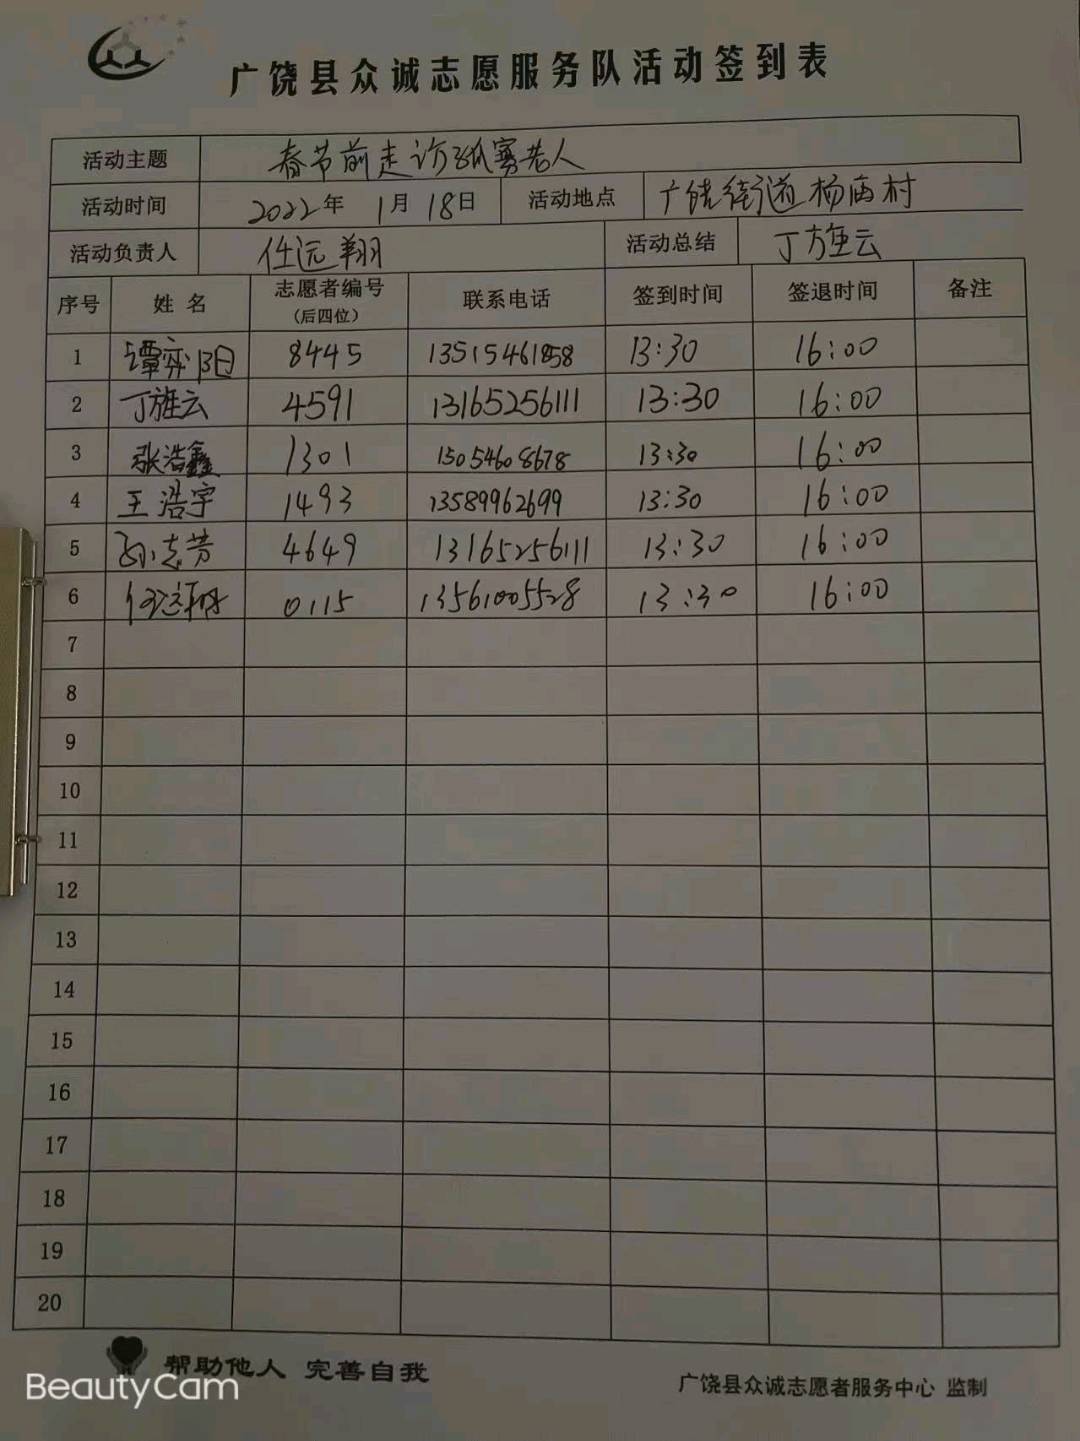 广饶县众诚志愿服务队活动签到表
活动主题 春节前走访孤寡老人
活动时间 2022年 1月 18日 活动地点 广饶街道杨庙村
活动负责人 任远翔 活动总结 丁旌云
序号 姓名 志愿者编号 联系电话 签到时间 签退时间 备注
(后四位)
1 谭弈阳 8445 13515461858 13:30 16:00
2 丁旌云 4591 13165256111 13:30 16:00
3 张浩鑫 1301 15054608678 13:30 16:00
4 王浩宇 1493 13589962699 13:30 16:00
5 孙志芳 4649 13165256111 13:30 16:00
6 任远翔 0115 13561005528 13:30 16:00
7
8
9
10
11
12
13
14
15
16
17
18
19
20
帮助他人 完善自我
广饶县众诚志愿者服务中心 监制
BeautyCam